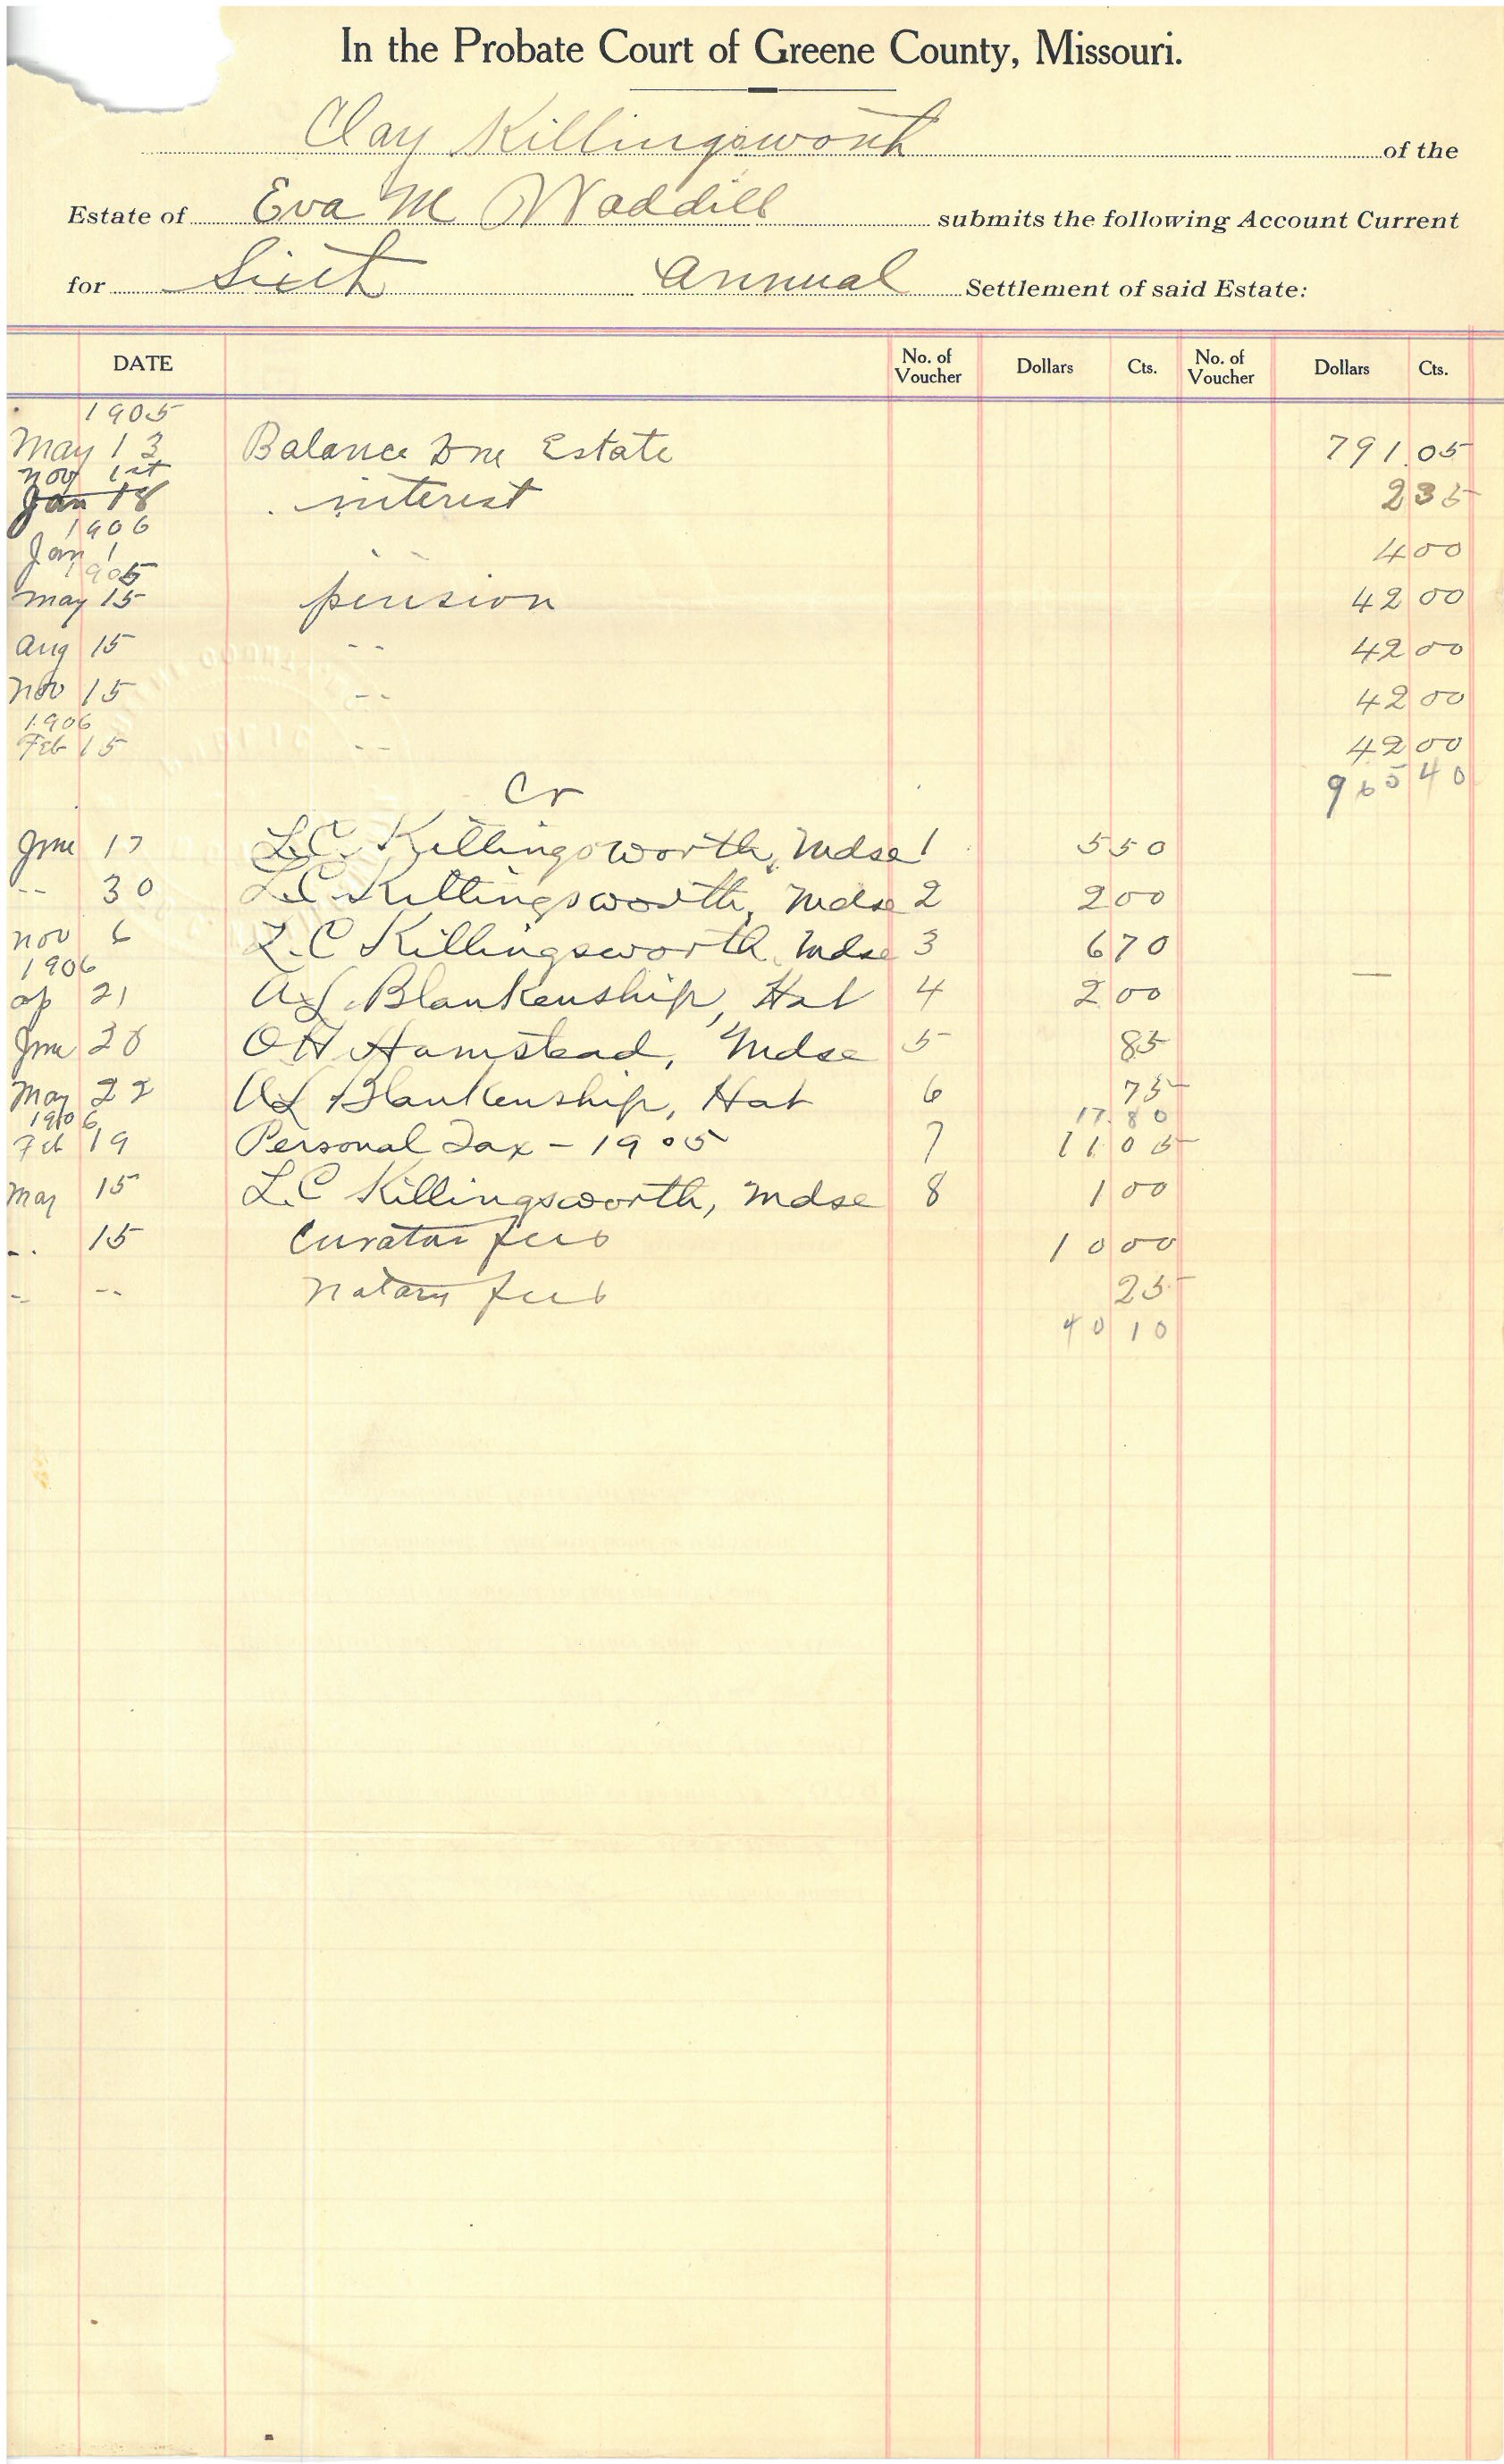 In the Probate Court of Greene County, Missouri.
Clay Killingsworth of the
Estate of Eva M Waddill submits the following Account Current
for Sixth Annual Settlement of said Estate:
DATE No. of Voucher Dollars Cts. No. of Voucher Dollars Cts.
1905
May 13 Balance Due Estate 791 05
Nov 1st
Jan 18 interest 2 35
1906
Jan 1 " " 4 00
1905
May 15 pension 42 00
Aug 15 - - 42 00
Nov 15 - - 42 00
1906
Feb 15 - - 42 00
965 40
Cr
June 17 L.C. Killingsworth, Mdse 1 5 50
-- 30 L.C. Killingsworth, Mdse 2 2 00
Nov 6 L.C Killingsworth, Mdse 3 6 70
1906
Ap 21 A L Blankenship, Hat 4 2 00
June 28 O H Hamstead, Mdse 5 85
May 22 A L Blankenship, Hat 6 75
17.80
1906
Feb 19 Personal Tax - 1905 7 11 05
May 15 L.C Killingsworth, Mdse 8 1 00
-- 15 Curator fees 10 00
- -- Notary fees 25
40 10